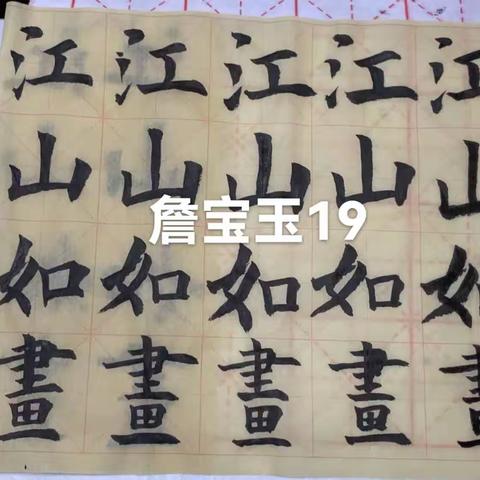 江江江江江
山山山山山
詹宝玉19
如如如如如
畫畫畫畫畫